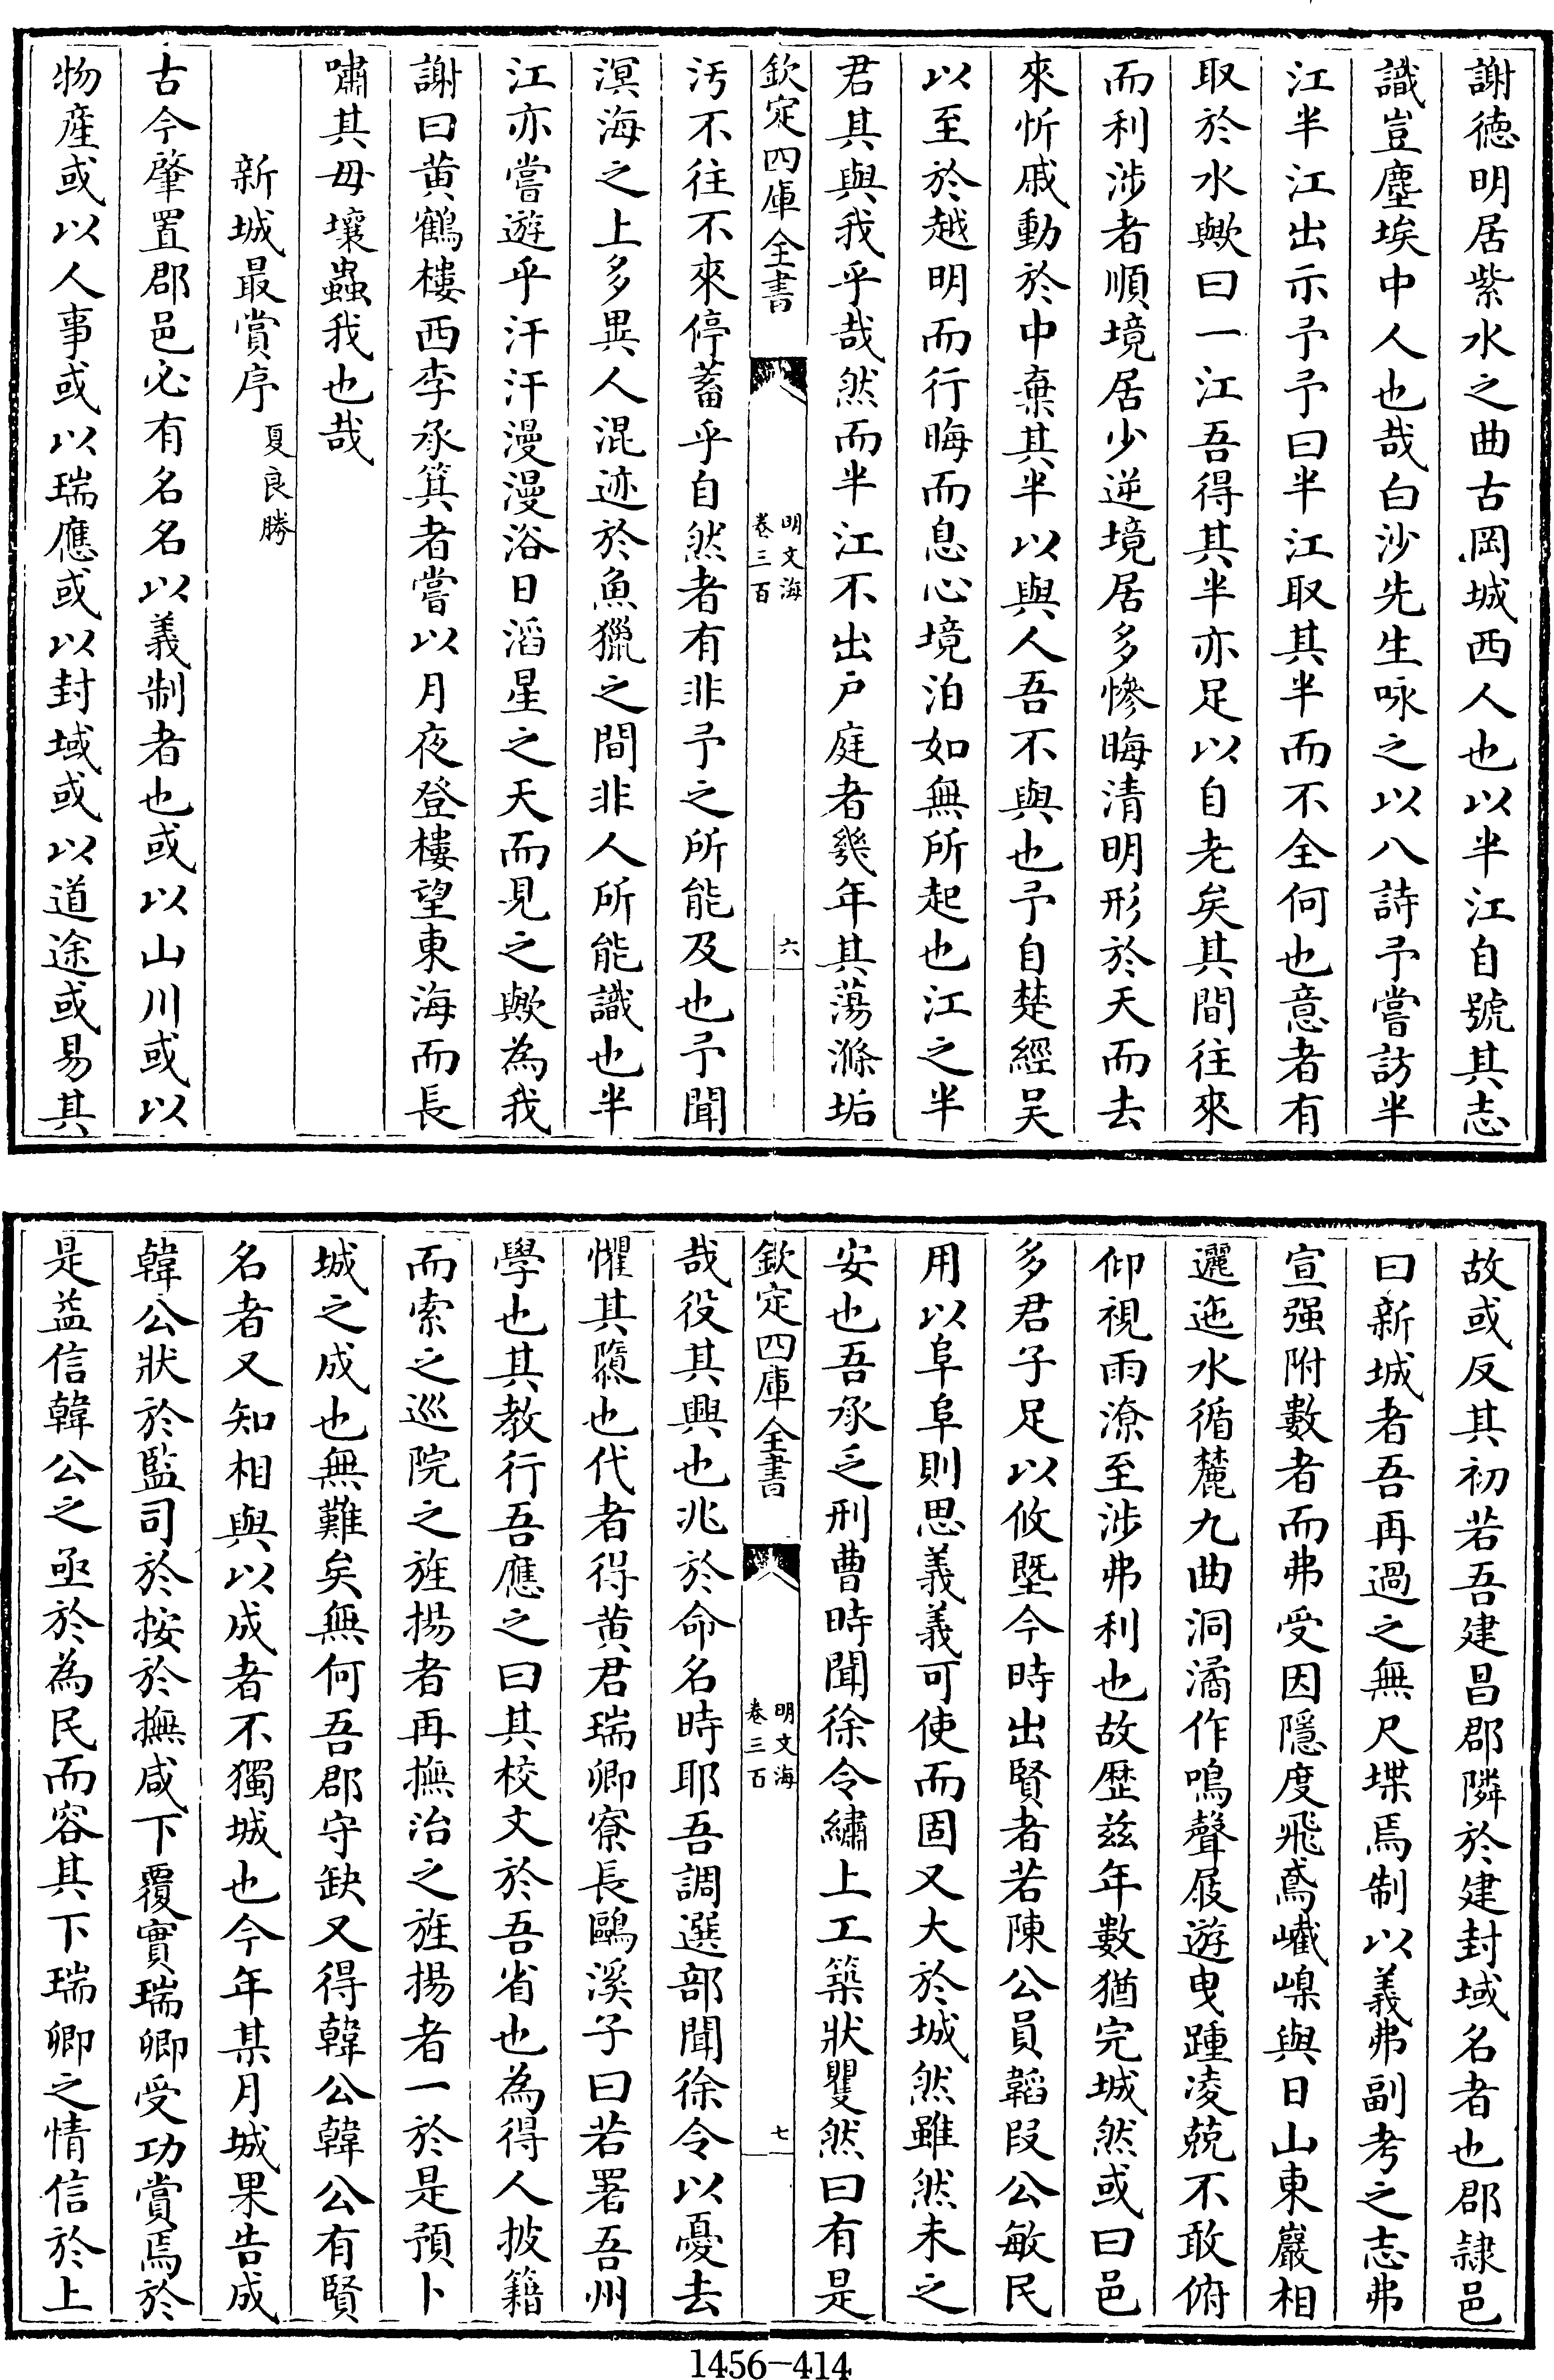 謝徳明居紫水之曲古岡城西人也以半江自號其志
識豈塵埃中人也哉白沙先生咏之以八詩予嘗訪半
江半江出示予予曰半江取其半而不全何也意者有
取於水歟曰一江吾得其半亦足以自老矣其間往來
而利涉者順境居少逆境居多惨晦清明形於天而去
來忻戚動於中棄其半以與人吾不與也予自楚經吴
以至於越明而行晦而息心境泊如無所起也江之半
君其與我乎哉然而半江不出户庭者幾年其蕩滌垢
欽定四庫全書
明文海
卷三百
六
汚不往不來停蓄乎自然者有非予之所能及也予聞
溟海之上多異人混迹於魚獵之間非人所能識也半
江亦嘗遊乎汗汗漫漫浴日滔星之天而見之歟為我
謝曰黄鶴樓西李承箕者嘗以月夜登樓望東海而長
嘯其毋壤蟲我也哉
新城最賞序 夏良勝
古今肇置郡邑必有名名以義制者也或以山川或以
物産或以人事或以瑞應或以封域或以道途或易其
故或反其初若吾建昌郡隣於建封域名者也郡隸邑
曰新城者吾再過之無尺堞焉制以義弗副考之志弗
宣强附數者而弗受因隱度飛鳶巀嵲與日山東巖相
邐迤水循麓九曲洞潏作鳴聲屐遊曳踵凌兢不敢俯
仰視雨潦至涉弗利也故歴兹年數猶完城然或曰邑
多君子足以攸塈今時出賢者若陳公員韜段公敏民
用以阜阜則思義義可使而固又大於城然雖然未之
安也吾承乏刑曹時聞徐令繡上工築狀瞿然曰有是
欽定四庫全書
明文海
卷三百
七
哉役其興也兆於命名時耶吾調選部聞徐令以憂去
懼其隳也代者得黄君瑞卿寮長鷗溪子曰若署吾州
學也其教行吾應之曰其校文於吾省也為得人披籍
而索之巡院之旌揚者再撫治之旌揚者一於是預卜
城之成也無難矣無何吾郡守缺又得韓公韓公有賢
名者又知相與以成者不獨城也今年某月城果告成
韓公狀於監司於按於撫咸下覆實瑞卿受功賞焉於
是益信韓公之亟於為民而容其下瑞卿之情信於上
1456—414